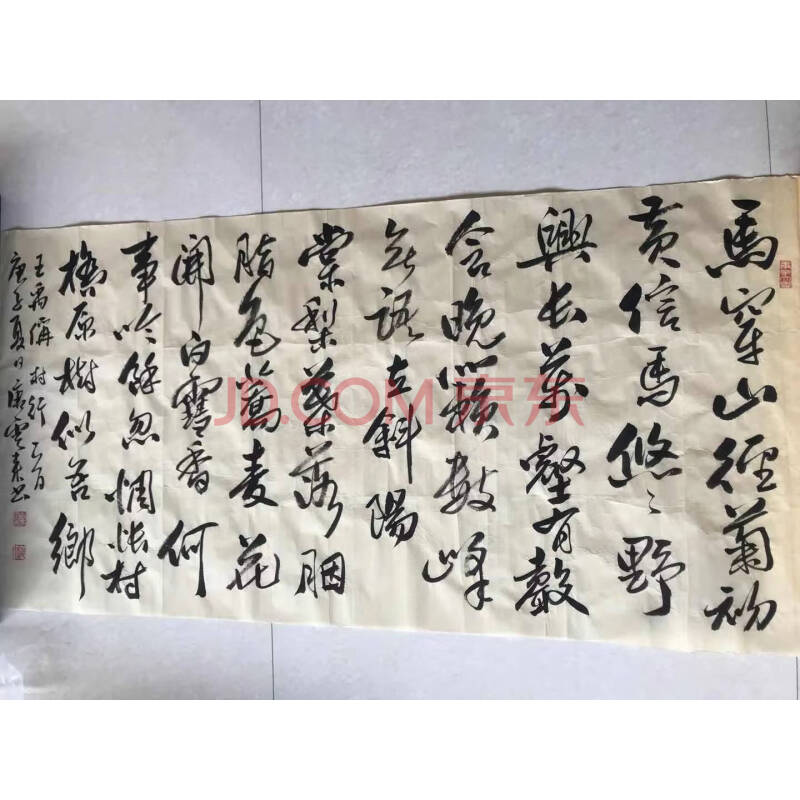 馬穿山徑菊初
黃信馬悠々野
興長萬壑有聲
含晚籟數峰
無語立斜陽
棠梨葉落胭
脂色蕎麥花
開白雪香何
事吟餘忽惆悵村
橋原樹似吾鄉
王禹偁村行一首
庚子夏日唐雲來書
JD.COM 京东